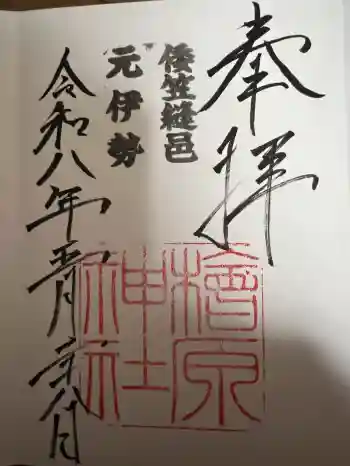 奉拝
倭笠縫邑
元伊勢
檜原
神社
令和八年五月二十八日